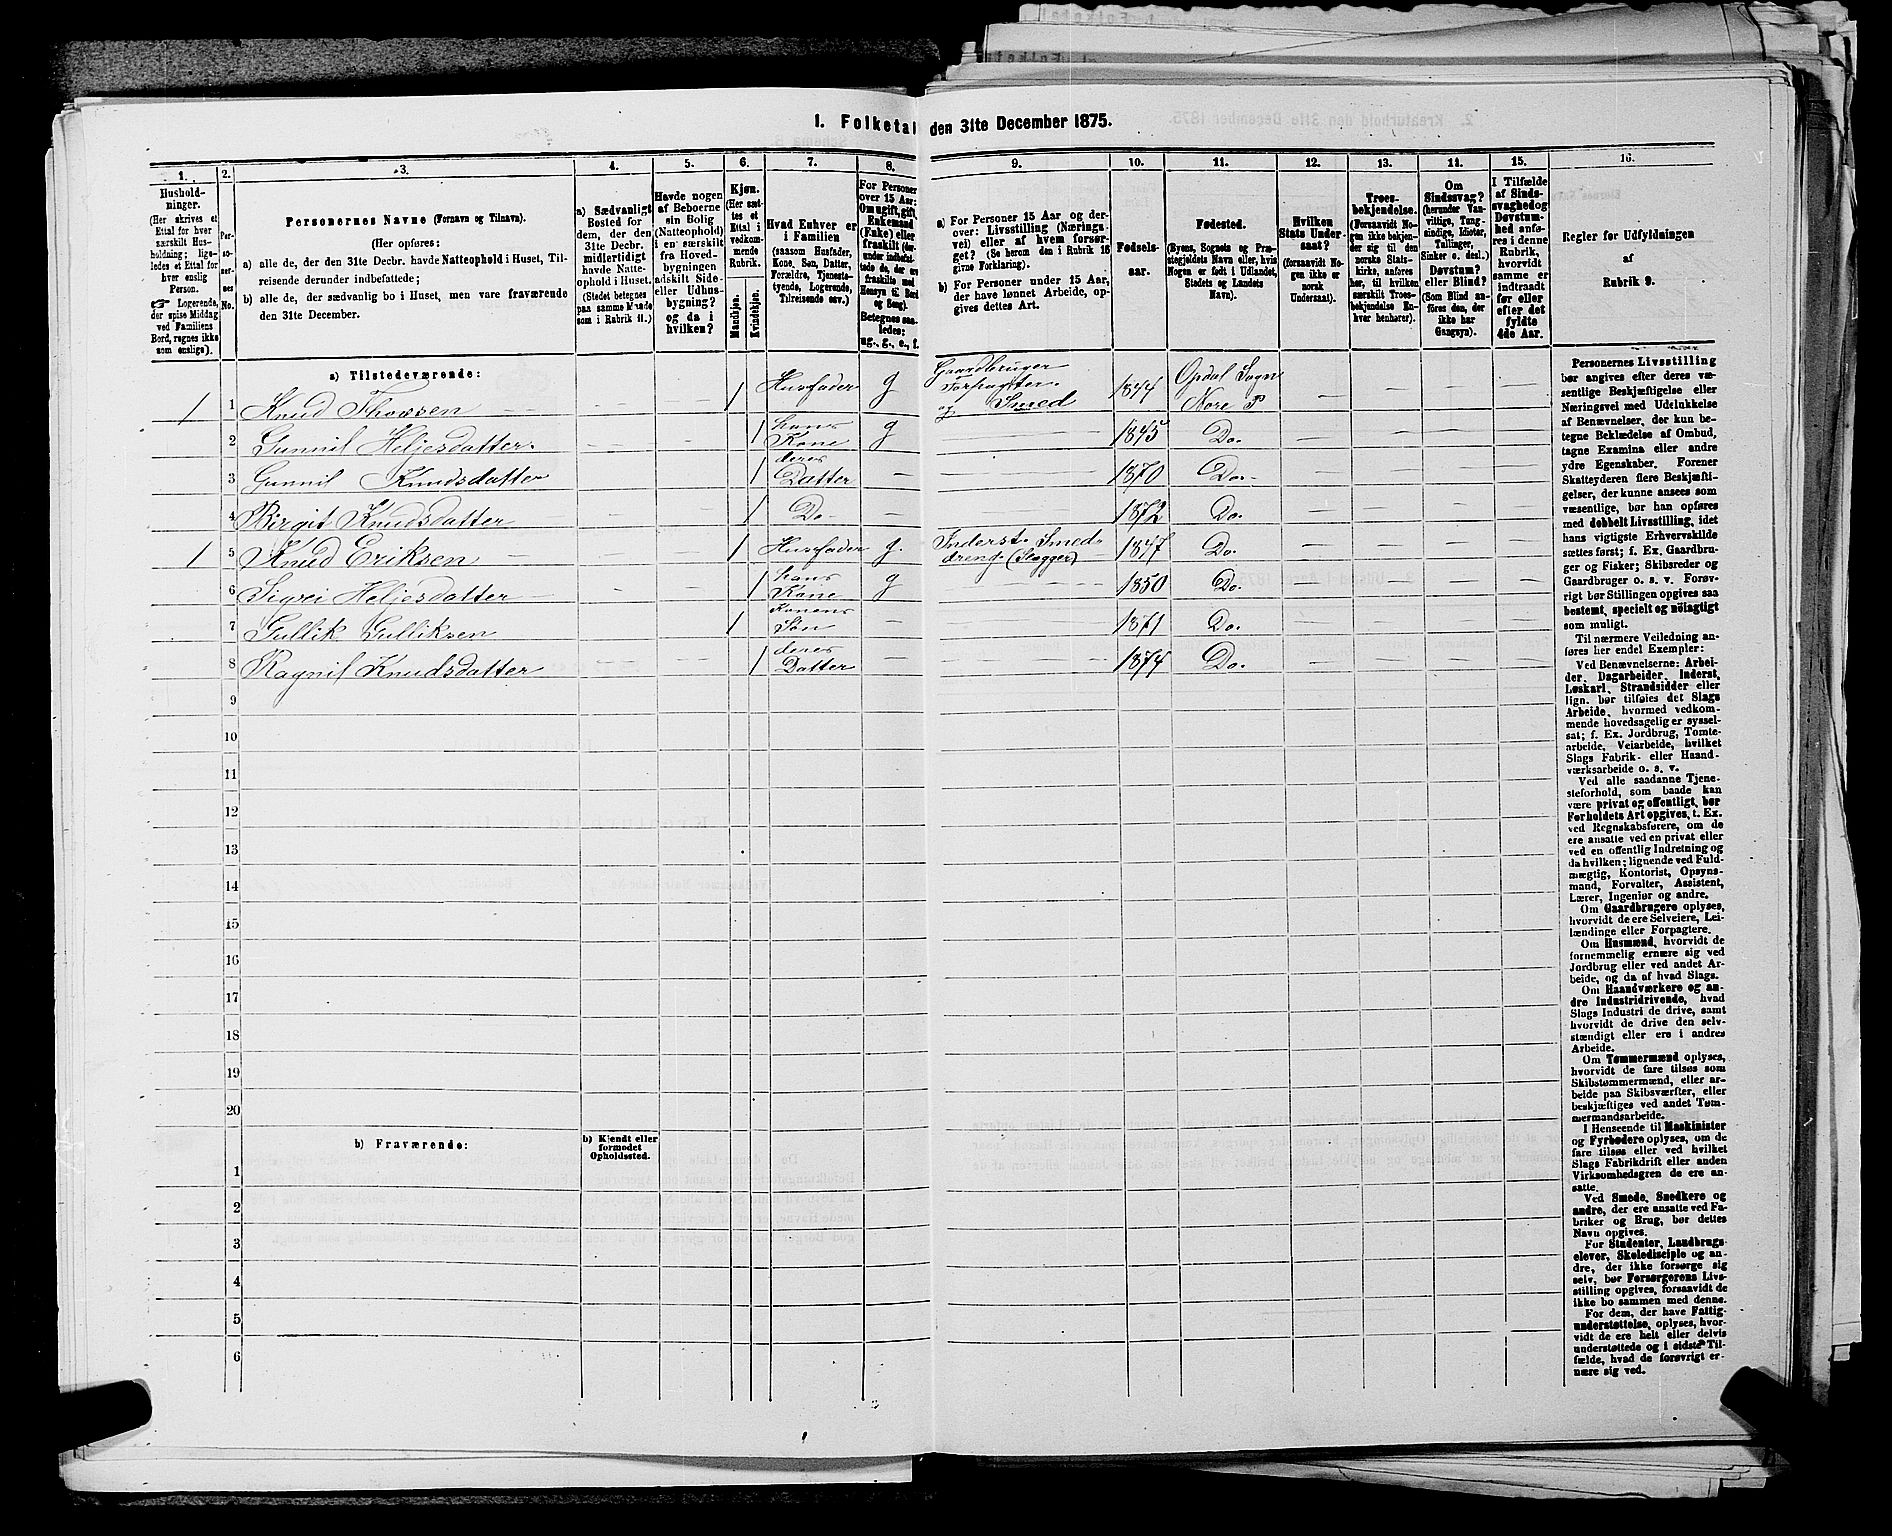 1. Folketal den 31te December 1875.
1. 2. 3. 4. 5. 6. 7. 8. 9. 10. 11. 12. 13. 14. 15. 16.
Hushold-
ninger.
(Her skrives et
Ettal for hver
særskilt Hus-
holdning; lige-
ledes et Ettal for
hver enslig
Person.
☞ Logerende,
der spise Middag
ved Familiens
Bord, regnes ikke
som enslige).
Per-
so-
ner-
nes
No.
Personernes Navne (Fornavn og Tilnavn).
(Her opføres:
a) alle de, der den 31te Decbr. havde Natteophold i Huset, Til-
reisende derunder indbefattede;
b) alle de, der sædvanlig bo i Huset, men vare fraværende
den 31te December.
a) Sædvanligt
Bosted for
dem, der den
31te Decbr.
midlertidigt
havde Natte-
ophold i Huset.
(Stedet betegnes
paa samme Maade
som i Rubrik 11.)
Havde nogen
af Beboerne
sin Bolig
(Natteophold)
i en særskilt
fra Hoved-
bygningen
adskilt Side-
eller Udhus-
bygning?
og da i
hvilken?
Kjøn.
(Her sæt-
tes et
Ettal i
vedkom-
mende
Rubrik.
Mandkjøn.
Kvindekjøn.
Hvad Enhver er
i Familien
(saasom Husfader,
Kone, Søn, Datter,
Forældre, Tjeneste-
tyende, Logerende,
Tilreisende osv.)
For Personer
over 15 Aar:
Om ugift, gift,
Enkemand
(Enke) eller
fraskilt (der-
under indbefat-
tede de, der ere
fraskilte med
Hensyn til Bord
og Seng).
Betegnes saa-
ledes:
ug., g., e., f.
a) For Personer 15 Aar og der-
over: Livsstilling (Nærings-
vei) eller af hvem forsør-
get? (Se herom den i Rubrik 16
givne Forklaring).
b) For Personer under 15 Aar,
der have lønnet Arbeide, op-
gives dettes Art.
Fødsels-
aar.
Fødested.
(Byens, Sognets og Præ-
stegjeldets Navn eller, hvis
Nogen er født i Udlandet,
Stedets og Landets
Navn).
Hvilken
Stats Under-
saat?
(forsaavidt No-
gen ikke er
norsk
Undersaat).
Troes-
bekjendelse.
(Forsaavidt No-
gen ikke bekjen-
der sig til den
norske Stats-
kirke, anføres
her, til hvilken
særskilt Troes-
bekjendelse En-
hver henhører).
Om
Sindssvag?
(herunder Van-
vittige, Tung-
sindige, Idioter,
Tullinger,
Sinker o. desl.)
Døvstum?
eller Blind?
(Som Blind an-
føres den, der
ikke har
Gangsyn).
I Tilfælde
af Sinds-
svaghed og
Døvstum-
hed anfø-
res i denne
Rubrik,
hvorvidt
samme er
indtraadt
før eller
efter det
fyldte
4de Aar.
Regler for Udfyldningen
af
Rubrik 9.
a) Tilstedeværende:
1 1 Knud Thovsen 1 Husfader g Gaardbruger Forpagter og Smed 1844 Opdal Sogn Nore P
2 Gunnil Heljesdatter 1 hans Kone g 1845 Do.
3 Gunnil Knudsdatter 1 deres Datter 1870 Do.
4 Birgit Knudsdatter 1 Do 1872 Do.
1 5 Knud Eriksen 1 Husfader g. Inderst. Smed- dreng (Slegger) 1847 Do.
6 Sigvei Heljesdatter 1 hans Kone g 1850 Do.
7 Gullik Gulliksen 1 Konens Søn 1871 Do.
8 Ragnil Knudsdatter 1 deres Datter 1874 Do.
9
10
11
12
13
14
15
16
17
18
19
20
b) Fraværende:
b) Kjendt eller
formodet
Opholdssted.
1
2
3
4
5
6
Personernes Livsstilling
bør angives efter deres væ-
sentlige Beskjæftigelse eller
Næringsvei med Udelukkelse
af Benævnelser, der kun be-
tegne Beklædelse af Ombud,
tagne Examina eller andre
ydre Egenskaber. Forener
Skatteyderen flere Beskjæfti-
gelser, der kunne ansees som
væsentlige, bør han opføres
med dobbelt Livsstilling, idet
hans vigtigste Erhvervskilde
sættes først; f. Ex. Gaardbru-
ger og Fisker; Skibsreder og
Gaardbruger o. s. v. Forøv-
rigt bør Stillingen opgives saa
bestemt, specielt og nøiagtigt
som muligt.
Til nærmere Veiledning an-
føres her endel Exempler:
Ved Benævnelserne: Arbei-
der, Dagarbeider, Inderst,
Løskarl, Strandsidder eller
lign. bør tilføies det Slags
Arbeide, hvormed vedkom-
mende hovedsagelig er syssel-
sat; f. Ex. Jordbrug, Tomte-
arbeide, Veiarbeide, hvilket
Slags Fabrik- eller Haand-
værksarbeide o. s. v.
Ved alle saadanne Tjene-
steforhold, som baade kan
være privat og offentligt, bør
Forholdets Art opgives, t. Ex.
ved Regnskabsførere, om de
ere ansatte ved en privat eller
ved en offentlig Indretning og
da hvilken; lignende ved Fuld-
mægtig, Kontorist, Opsyns-
mand, Forvalter, Assistent,
Lærer, Ingeniør og andre.
Om Gaardbrugere oplyses,
hvorvidt de ere Selveiere, Lei-
lændinge eller Forpagtere.
Om Husmænd, hvorvidt de
fornemmelig ernære sig ved
Jordbrug eller ved andet Ar-
beide, og da af hvad Slags.
Om Haandværkere og an-
dre Industridrivende, hvad
Slags Industri de drive, samt
hvorvidt de drive den selv-
stændigt eller ere i andres
Arbeide.
Om Tømmermænd oplyses,
hvorvidt de fare tilsøs som
Skibstømmermænd, eller ar-
beide paa Skibsværfter, eller
beskjæftiges ved andet Tøm-
mermandsarbeide.
I Henseende til Maskinister
og Fyrbødere oplyses, om de
fare tilsøs eller ved hvilket
Slags Fabrikdrift eller anden
Virksomhedsgren de ere an-
satte.
Ved Smede, Snedkere og
andre, der ere ansatte ved Fa-
briker og Brug, bør dettes
Navn opgives.
For Studenter, Landbrugs-
elever, Skoledisciple og an-
dre, der ikke forsørge sig
selv, bør Forsørgerens Livs-
stilling opgives, forsaavidt de
ikke bo sammen med denne.
For dem, der have Fattig-
understøttelse, oplyses, hvor-
vidt de ere helt eller delvis
understøttede og i sidste Til-
fælde, hvad de forøvrigt er-
nære sig ved.